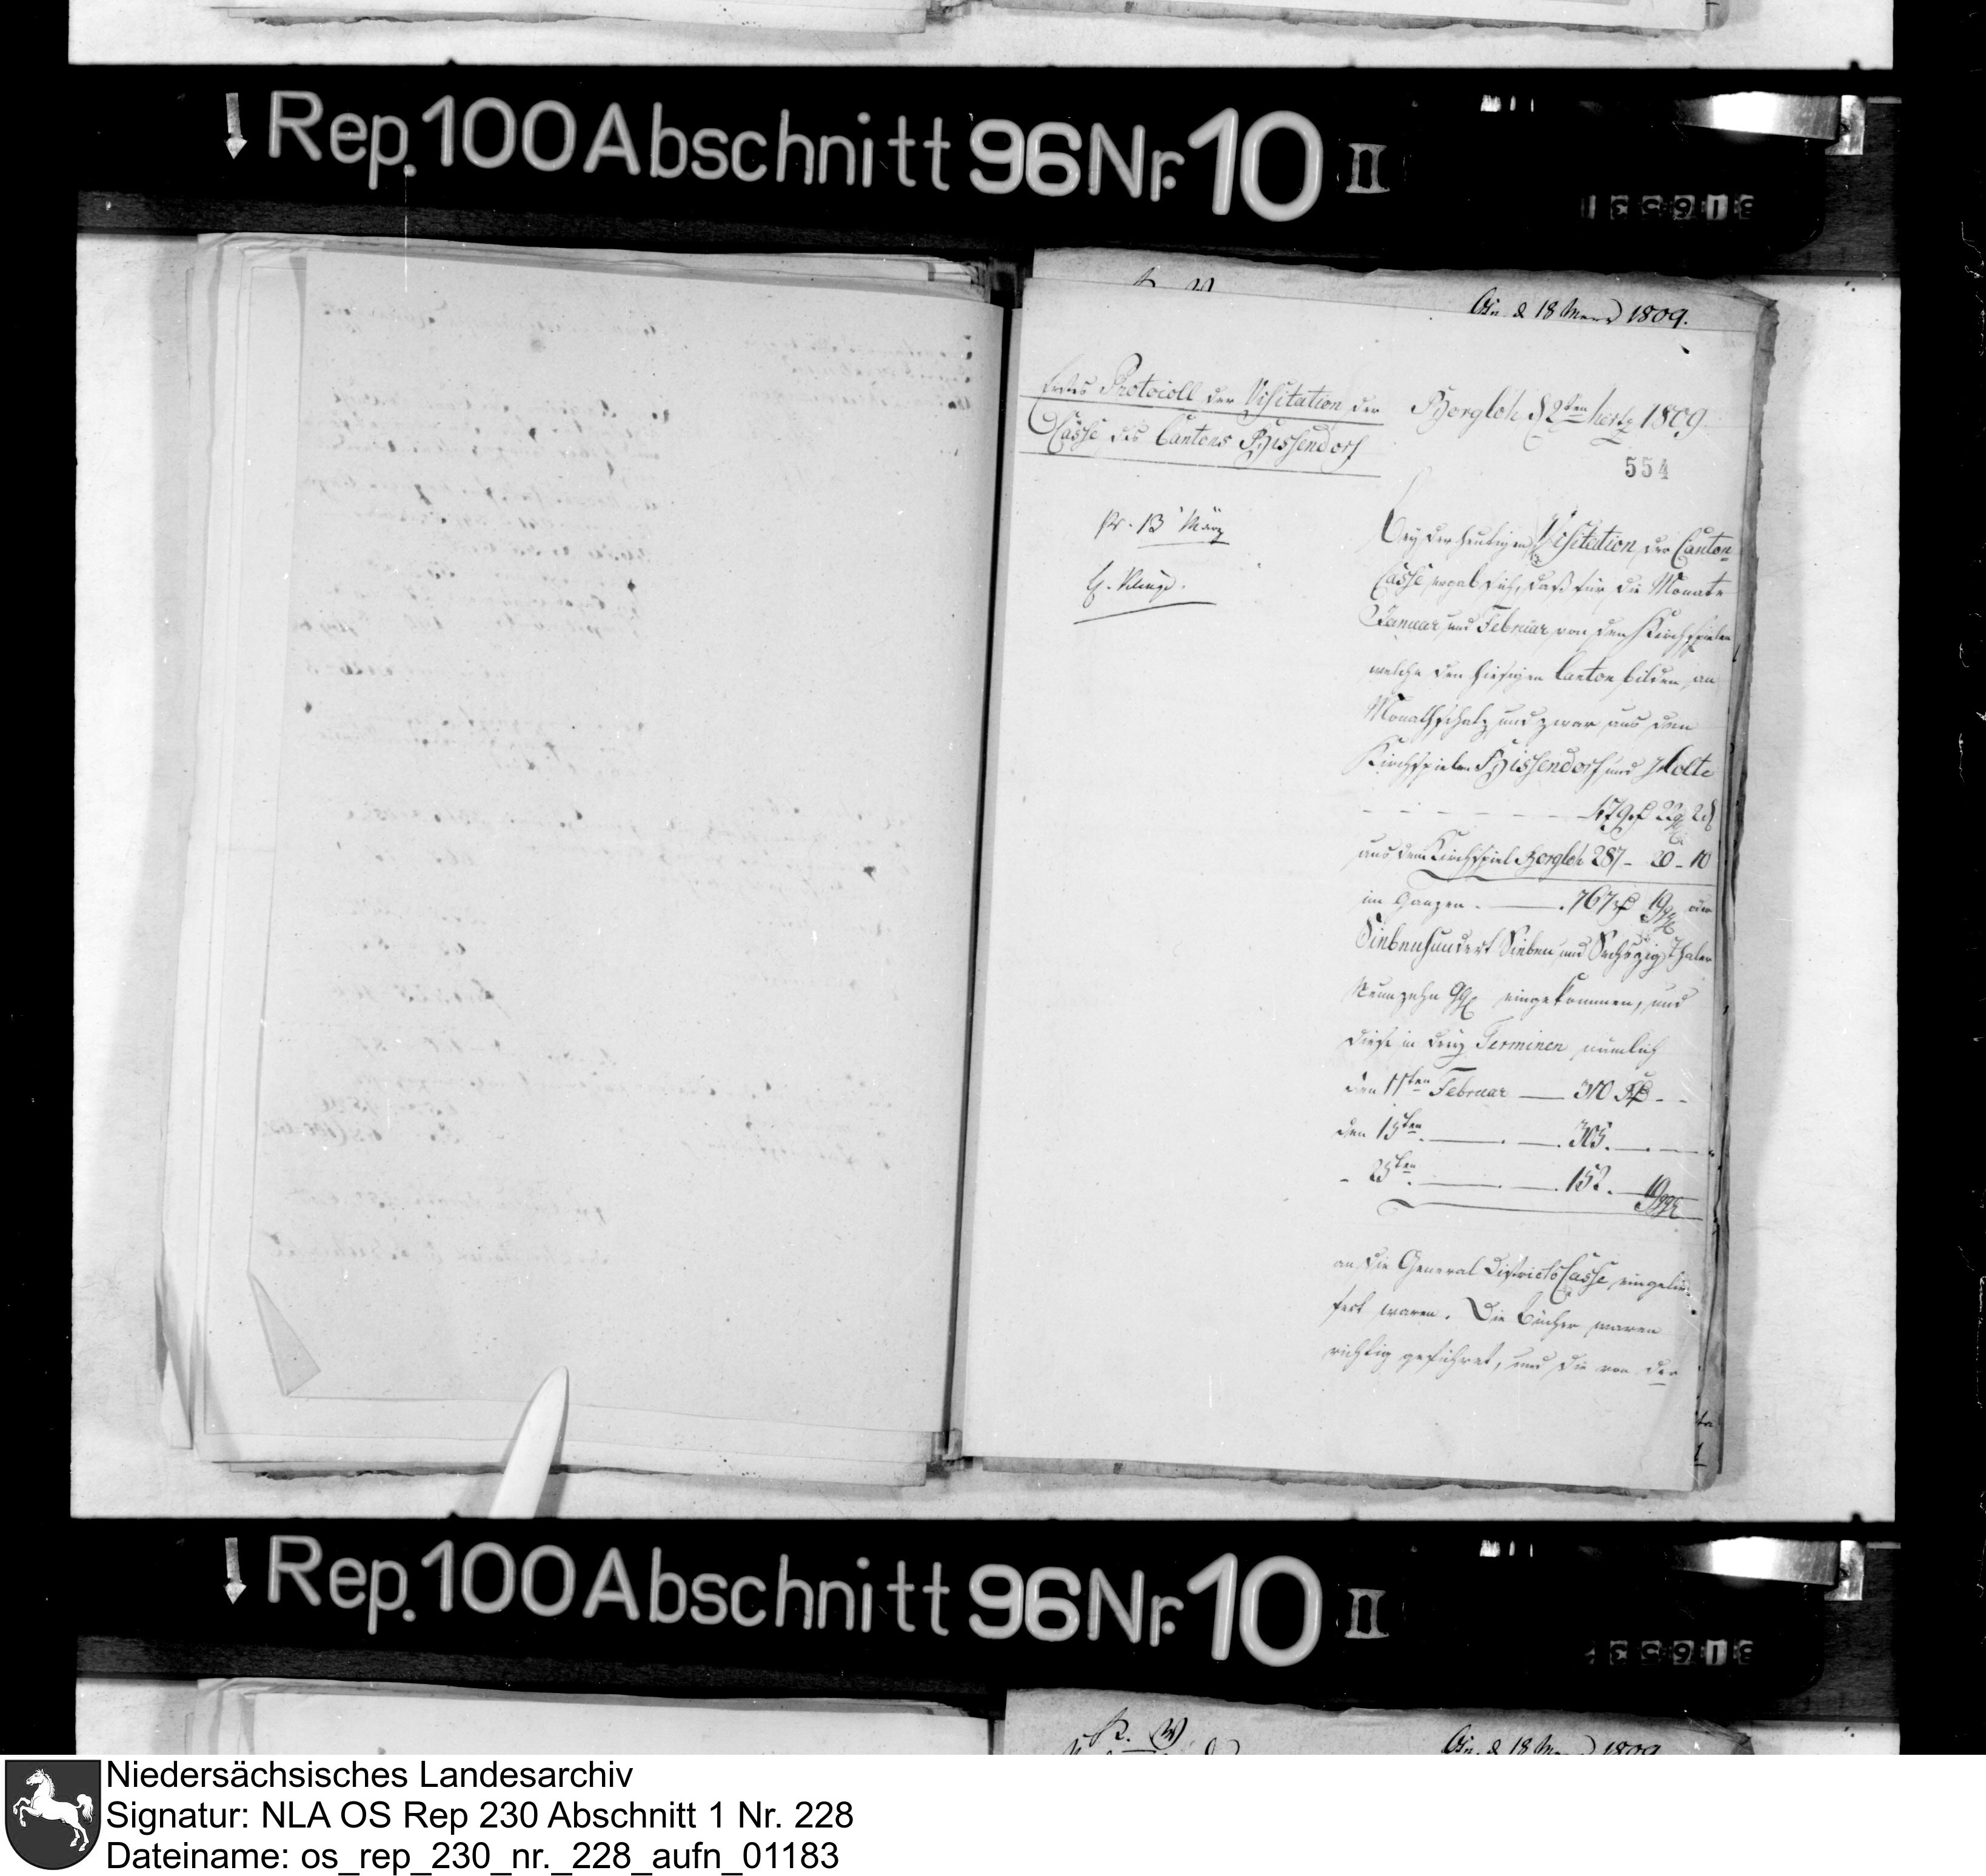 Rep. 100 Abschnitt 96 Nr. 10 II
Osn. d 18 Merz 1809.
Erstes Protocoll der Visitation der
Casse des Cantons Bissendorf
Borgloh d 2ten Mertz 1809.
554
pr. 13 März
Bey der heutigen Visitation der Canton-
Casse ergab sich, daß für die Monate
Januar und Februar von den Kirchspielen
welche den hiesigen Canton bilden an
Monathschatz und zwar aus den
Kirchspielen Bissendorf und Holte
479 rt 22 ggl 2 d
aus dem Kirchspiel Borgloh 287 - 20 - 10
im Ganzen - 767 rt 19 ggl oder
Siebenhundert Sieben und Sechszig Thaler
Neunzehn ggl eingekommen, und
diese in drey Terminen nämlich
den 11ten Februar — 310 rt - -
den 15ten — 305. — —
- 25ten — 152. 19 ggl
an die General Districts Casse eingelie-
fert waren. Die Bücher waren
richtig geführet, und die von der
Rep. 100 Abschnitt 96 Nr. 10 II
Osn. d 18 Merz 1809
Niedersächsisches Landesarchiv
Signatur: NLA OS Rep 230 Abschnitt 1 Nr. 228
Dateiname: os_rep_230_nr._228_aufn_01183